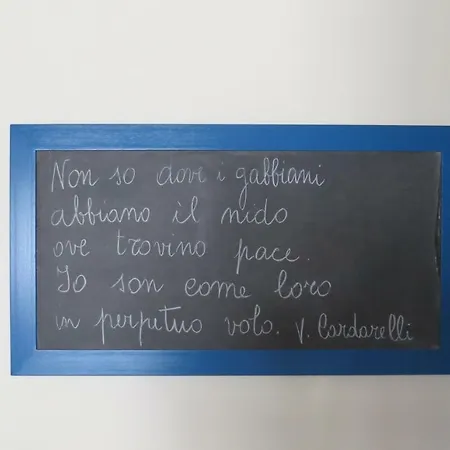 Non so dove i gabbiani
abbiano il nido
ove trovino pace.
Io son come loro
in perpetuo volo. V. Cardarelli